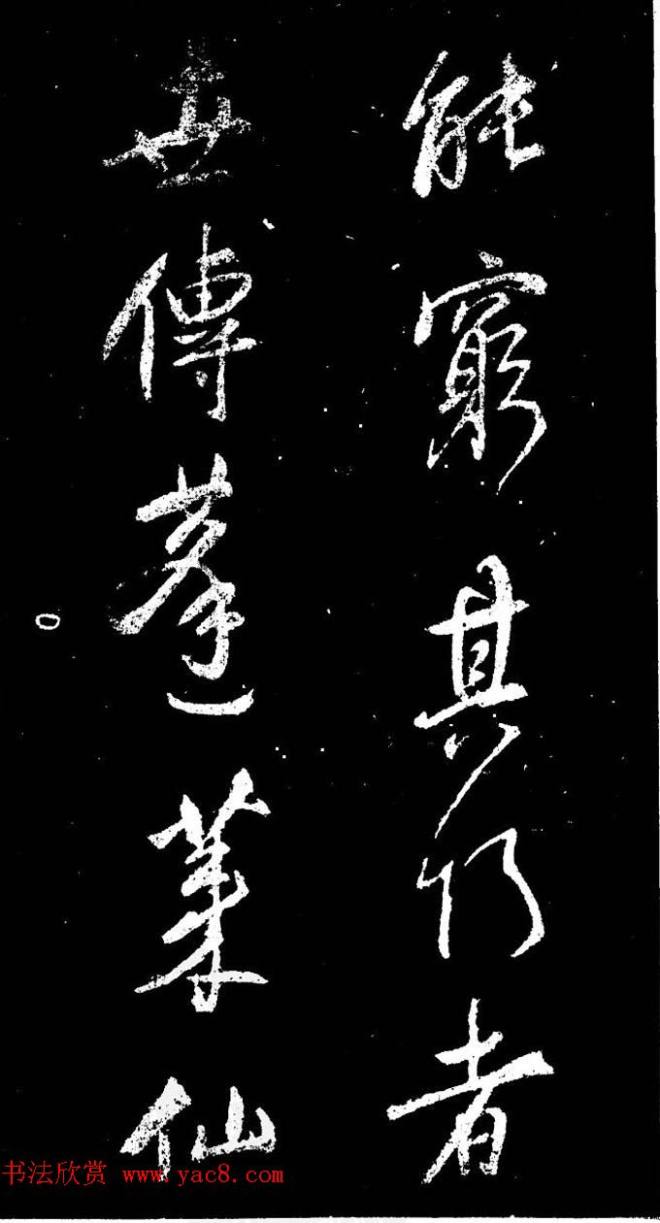 能窮其所者
世傳蓬萊仙
书法欣赏 www.yac8.com